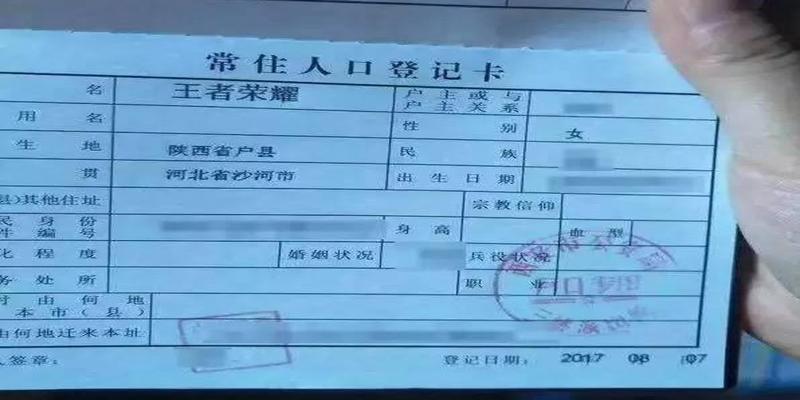 常住人口登记卡
名 王者荣耀 户主或与户主关系
用名 性别 女
生地 陕西省户县 民族
贯 河北省沙河市 出生日期
县)其他住址 宗教信仰
民身份件编号 身高 血型
化程度 婚姻状况 兵役状况
务处所 职业
由何地本市(县)
由何地迁来本址
人签章： 登记日期： 2017 08 07